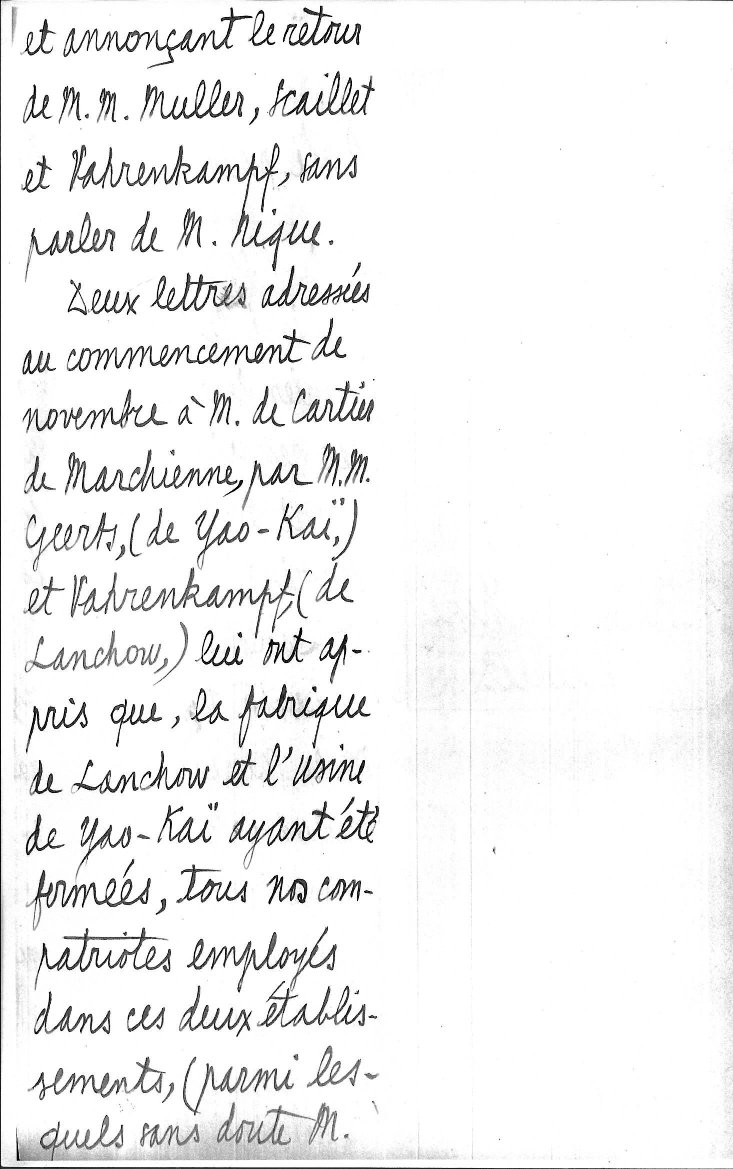 et annonçant le retour
de M.M. Muller, Scaillet
et Vahrenkampf, sans
parler de M. Nique.
Deux lettres adressées
au commencement de
novembre à M. de Cartier
de Marchienne, par M.M.
Geerts, (de Yao-Kaï,)
et Vahrenkampf, (de
Lanchow,) lui ont ap-
pris que, la fabrique
de Lanchow et l'usine
de Yao-Kaï ayant été
fermées, tous nos com-
patriotes employés
dans ces deux établis-
sements, (parmi les-
quels sans doute M.